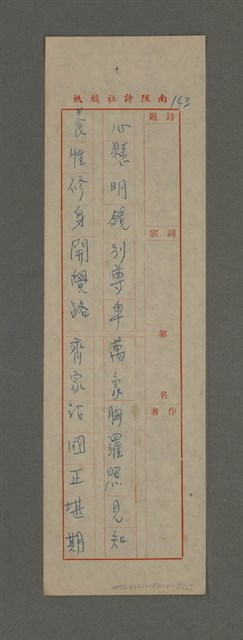 南陔詩社稿紙
143
詩題
詞宗
第 名
作者
心懸明鏡別尊卑 萬象胸羅照見知
養性修身開覺路 齊家治國正堪期